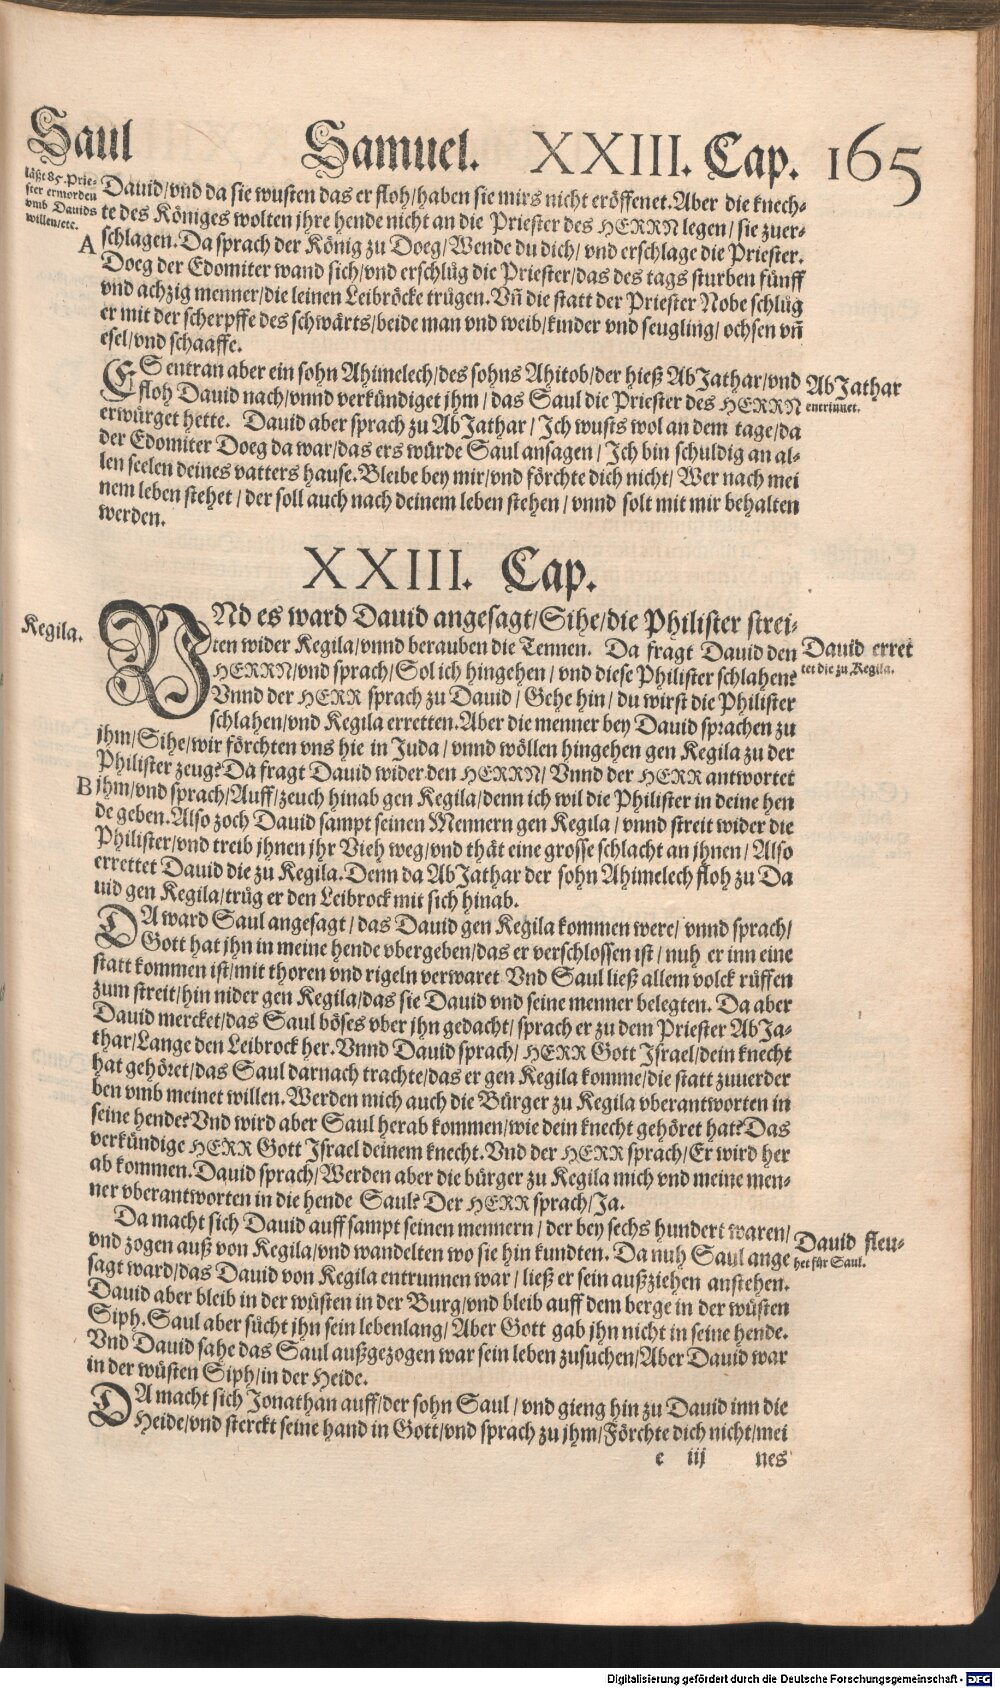 Saul Samuel. XXIII. Cap. 165
läßt 85. Prie-
ster ermorden
vmb Dauids
willen/etc.
A
Dauid/vnd da sie wusten das er floh/haben sie mirs nicht eröffenet. Aber die knech-
te des Königes wolten jhre hende nicht an die Priester des HERRN legen/ sie zuer-
schlagen. Da sprach der König zu Doeg/Wende du dich/ vnd erschlage die Priester.
Doeg der Edomiter wand sich/vnd erschlůg die Priester/das des tags sturben fünff
vnd achzig menner/die leinen Leibröcke trůgen. Vñ die statt der Priester Nobe schlůg
er mit der scherpffe des schwärts/beide man vnd weib/kinder vnd seugling/ ochsen vñ
esel/vnd schaaffe.
ES entran aber ein sohn Ahimelech/des sohns Ahitob/der hieß AbJathar/vnd
floh Dauid nach/vnnd verkündiget jhm / das Saul die Priester des HERRN
erwürget hette. Dauid aber sprach zu AbJathar/ Ich wusts wol an dem tage/da
der Edomiter Doeg da war/das ers würde Saul ansagen/ Ich bin schuldig an al-
len seelen deines vatters hause. Bleibe bey mir/vnd förchte dich nicht/ Wer nach mei
nem leben stehet / der soll auch nach deinem leben stehen / vnnd solt mit mir behalten
werden.
AbJathar
entrinnet.
XXIII. Cap.
Kegila.
VNd es ward Dauid angesagt/Sihe/die Philister strei-
ten wider Kegila/vnnd berauben die Tennen. Da fragt Dauid den
HERRN/vnd sprach/Sol ich hingehen / vnd diese Philister schlahen?
Vnnd der HERR sprach zu Dauid/ Gehe hin/ du wirst die Philister
schlahen/vnd Kegila erretten. Aber die menner bey Dauid sprachen zu
jhm/Sihe/wir förchten vns hie in Juda / vnnd wöllen hingehen gen Kegila zu der
Philister zeug? Da fragt Dauid wider den HERRN/ Vnnd der HERR antwortet
jhm/vnd sprach/Auff/zeuch hinab gen Kegila/denn ich wil die Philister in deine hen
de geben. Also zoch Dauid sampt seinen Mennern gen Kegila / vnnd streit wider die
Philister/vnd treib jhnen jhr Vieh weg/vnd thät eine grosse schlacht an jhnen/ Also
errettet Dauid die zu Kegila. Denn da AbJathar der sohn Ahimelech floh zu Da
uid gen Kegila/trůg er den Leibrock mit sich hinab.
Dauid erret
tet die zu Kegila.
B
DA ward Saul angesagt / das Dauid gen Kegila kommen were/ vnnd sprach/
Gott hat jhn in meine hende vbergeben/das er verschlossen ist / nuh er inn eine
statt kommen ist/mit thoren vnd rigeln verwaret Vnd Saul ließ allem volck růffen
zum streit/hin nider gen Kegila/das sie Dauid vnd seine menner belegten. Da aber
Dauid mercket/das Saul böses vber jhn gedacht/ sprach er zu dem Priester AbJa-
thar/Lange den Leibrock her. Vnnd Dauid sprach/ HERR Gott Israel/dein knecht
hat gehöret/das Saul darnach trachte/das er gen Kegila komme/die statt zuuerder
ben vmb meinet willen. Werden mich auch die Bürger zu Kegila vberantworten in
seine hende? Vnd wird aber Saul herab kommen/wie dein knecht gehöret hat? Das
verkündige HERR Gott Israel deinem knecht. Vnd der HERR sprach/Er wird her
ab kommen. Dauid sprach/Werden aber die bürger zu Kegila mich vnd meine men-
ner vberantworten in die hende Saul? Der HERR sprach/Ja.
Da macht sich Dauid auff sampt seinen mennern / der bey sechs hundert waren/
vnd zogen auß von Kegila/vnd wandelten wo sie hin kundten. Da nuh Saul ange
sagt ward/das Dauid von Kegila entrunnen war / ließ er sein außziehen anstehen.
Dauid aber bleib in der wüsten in der Burg/vnd bleib auff dem berge in der wüsten
Siph. Saul aber sůcht jhn sein lebenlang/ Aber Gott gab jhn nicht in seine hende.
Vnd Dauid sahe das Saul außgezogen war sein leben zusuchen/Aber Dauid war
in der wüsten Siph/in der Heide.
Dauid fleu-
het für Saul.
DA macht sich Jonathan auff/der sohn Saul / vnd gieng hin zu Dauid inn die
Heide/vnd sterckt seine hand in Gott/vnd sprach zu jhm/Förchte dich nicht/mei
e iij nes
Digitalisierung gefördert durch die Deutsche Forschungsgemeinschaft - DFG